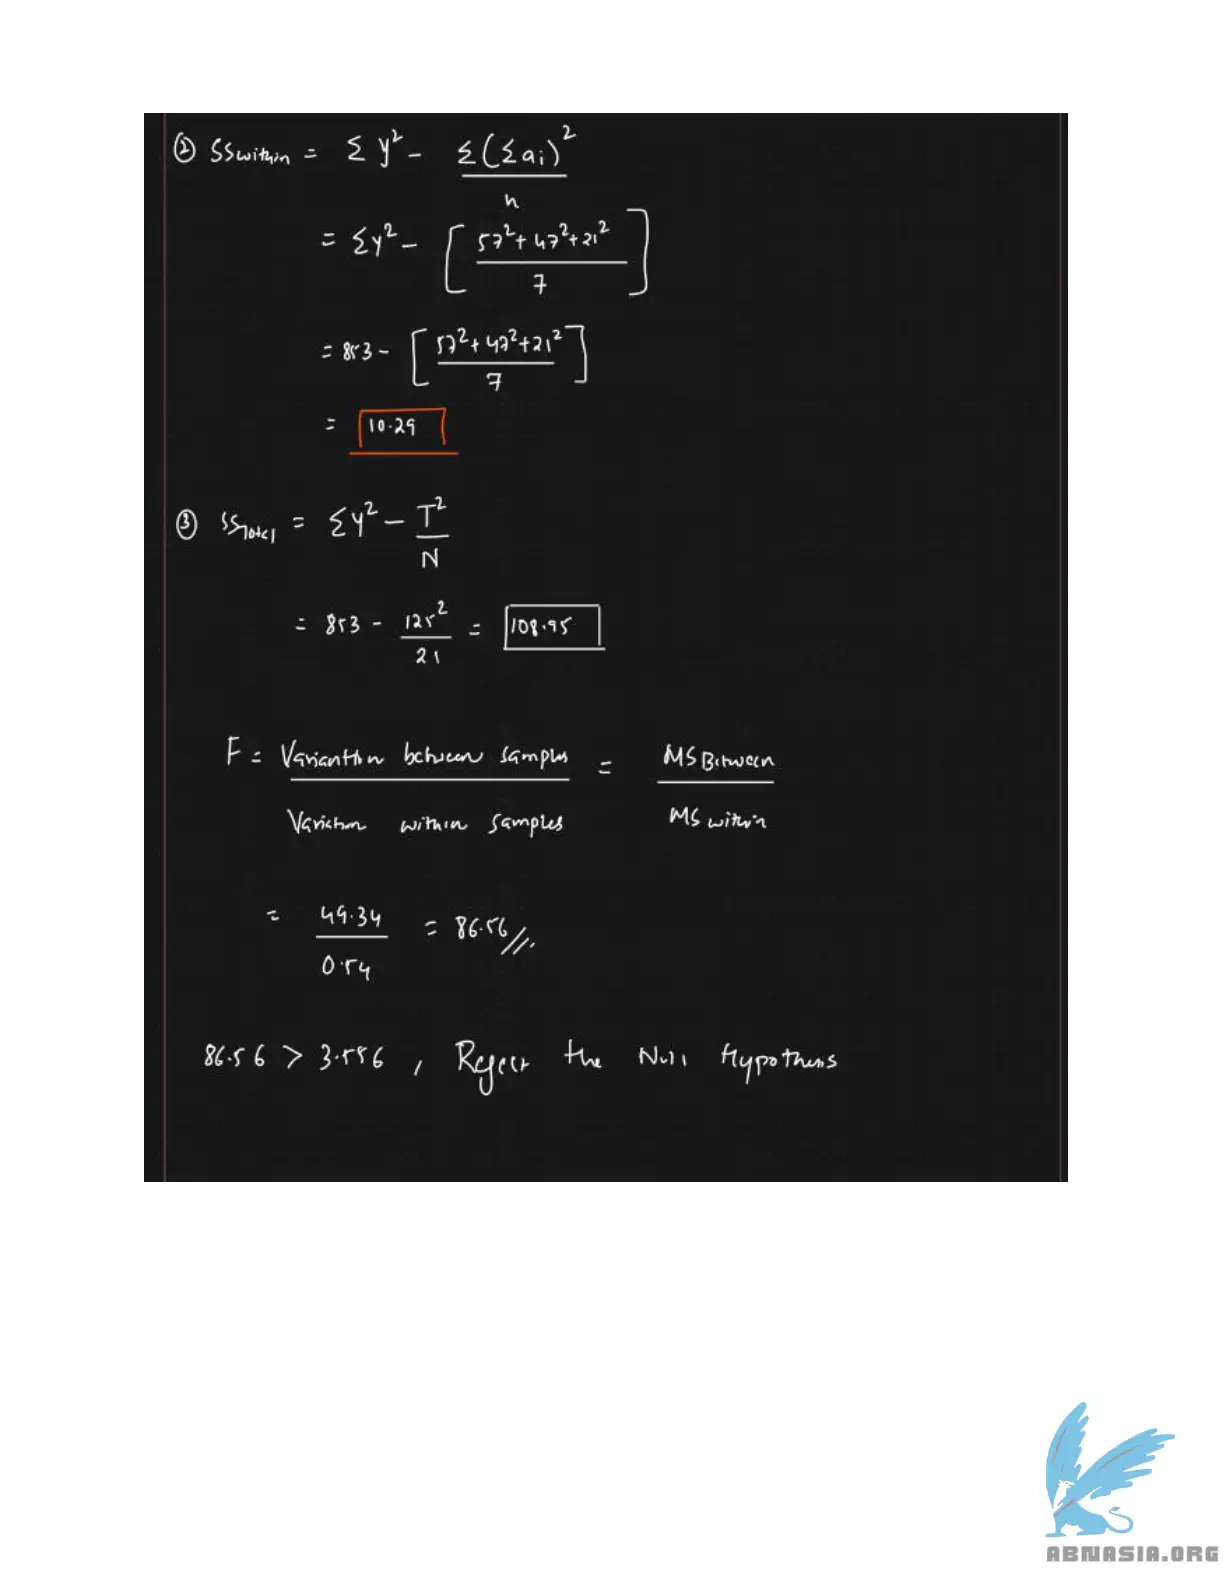 ② SSwithin = Σ y² - Σ(Σai)²
n
= Σy² - [ 57² + 47² + 21² ]
7
= 853 - [ 57² + 47² + 21² ]
7
= 10.29
③ SSTotal = Σy² - T²
N
= 853 - 125² = 108.95
21
F = Varianthon between samples = MS Between
Variation within samples MS within
= 49.34 = 86.56 //.
0.54
86.56 > 3.556 , Reject the Null Hypothesis
ABNASIA.ORG